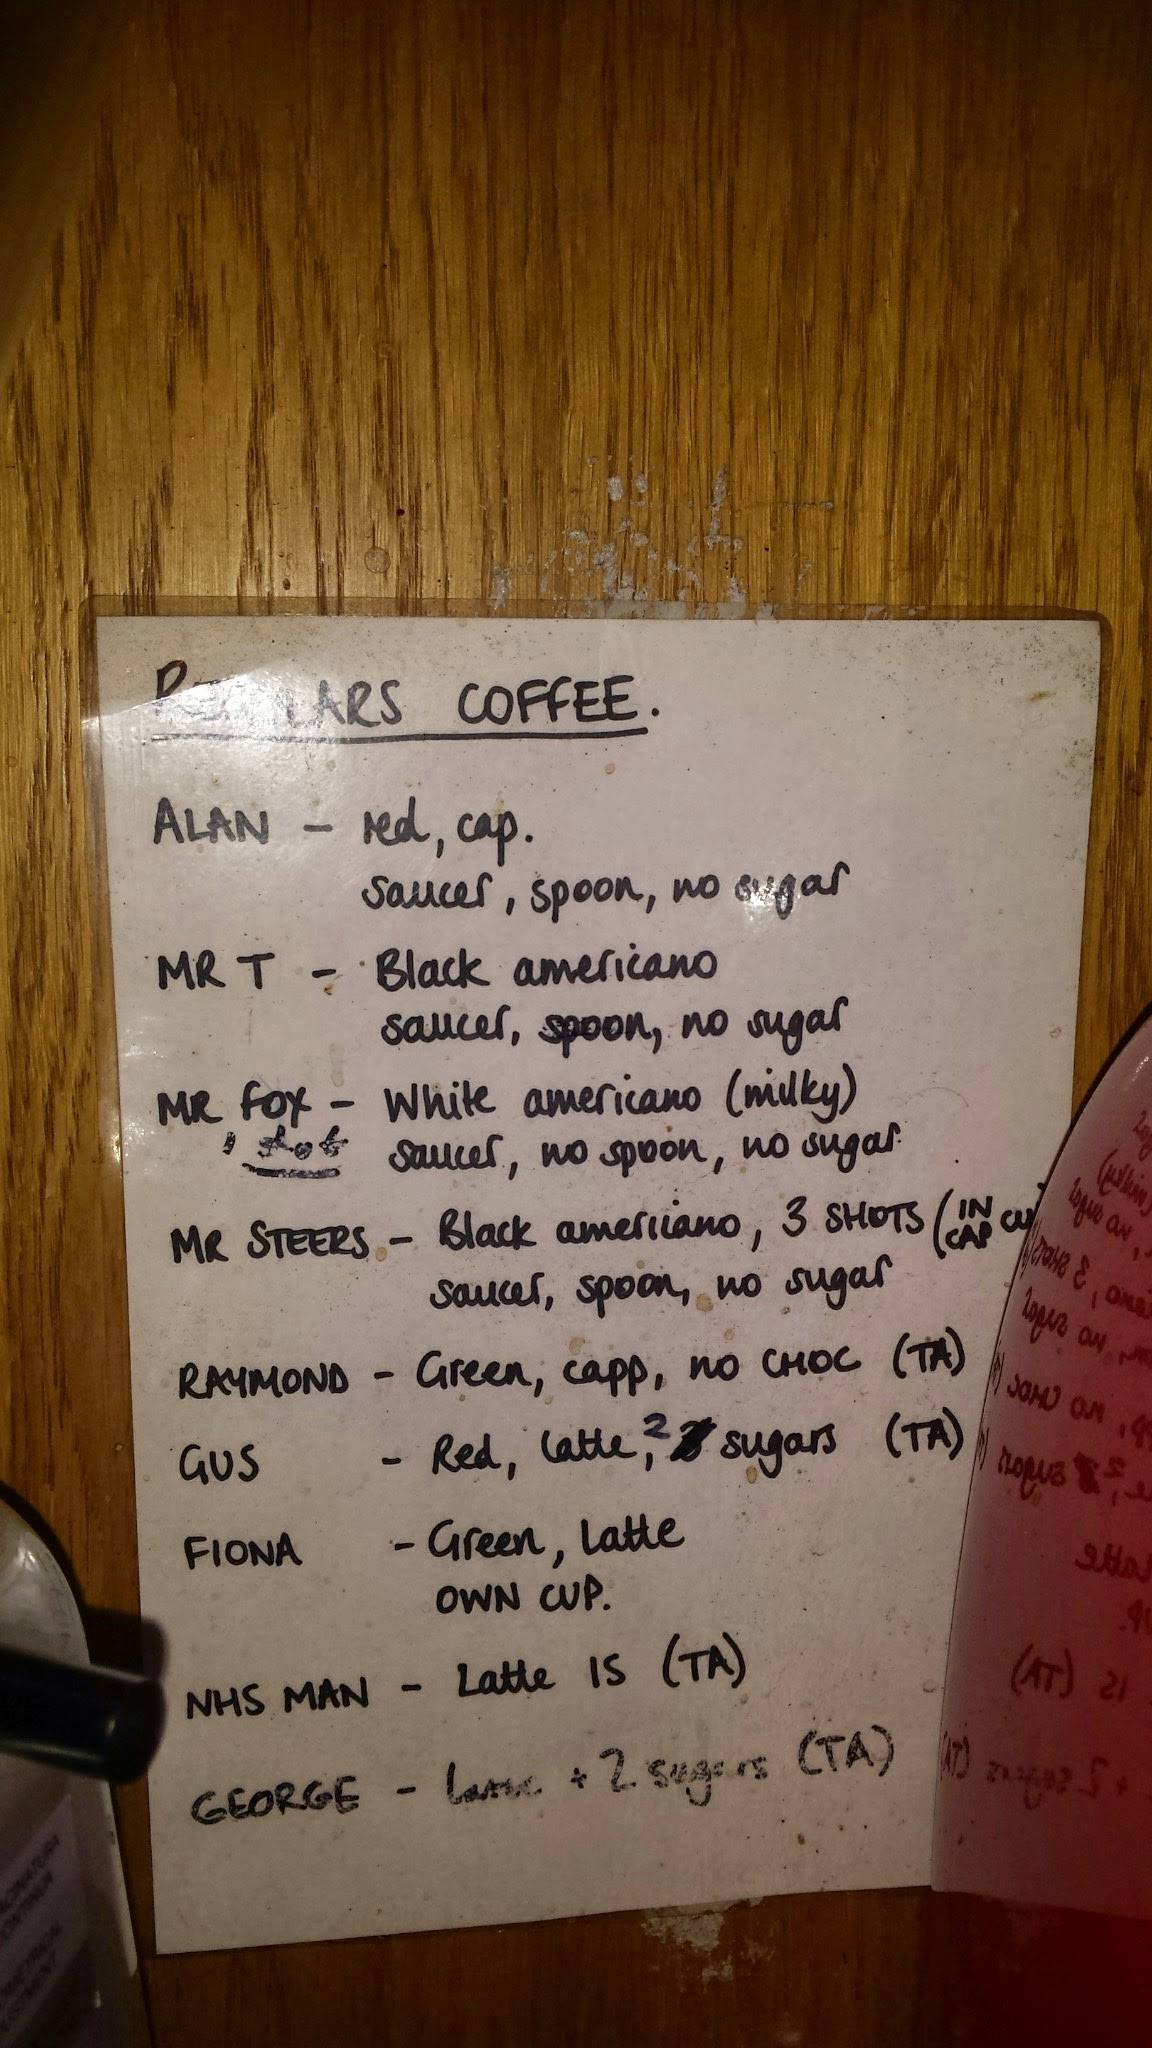 REGULARS COFFEE.
ALAN - red, cap.
saucer, spoon, no sugar
MR T - Black americano
saucer, spoon, no sugar
MR FOX - White americano (milky)
saucer, no spoon, no sugar
MR STEERS - Black americano, 3 SHOTS (IN CAP CU
saucer, spoon, no sugar
RAYMOND - Green, capp, no CHOC (TA)
GUS - Red, latte, 2 sugars (TA)
FIONA - Green, latte
OWN CUP.
NHS MAN - Latte 1S (TA)
GEORGE - Latte + 2 sugars (TA)